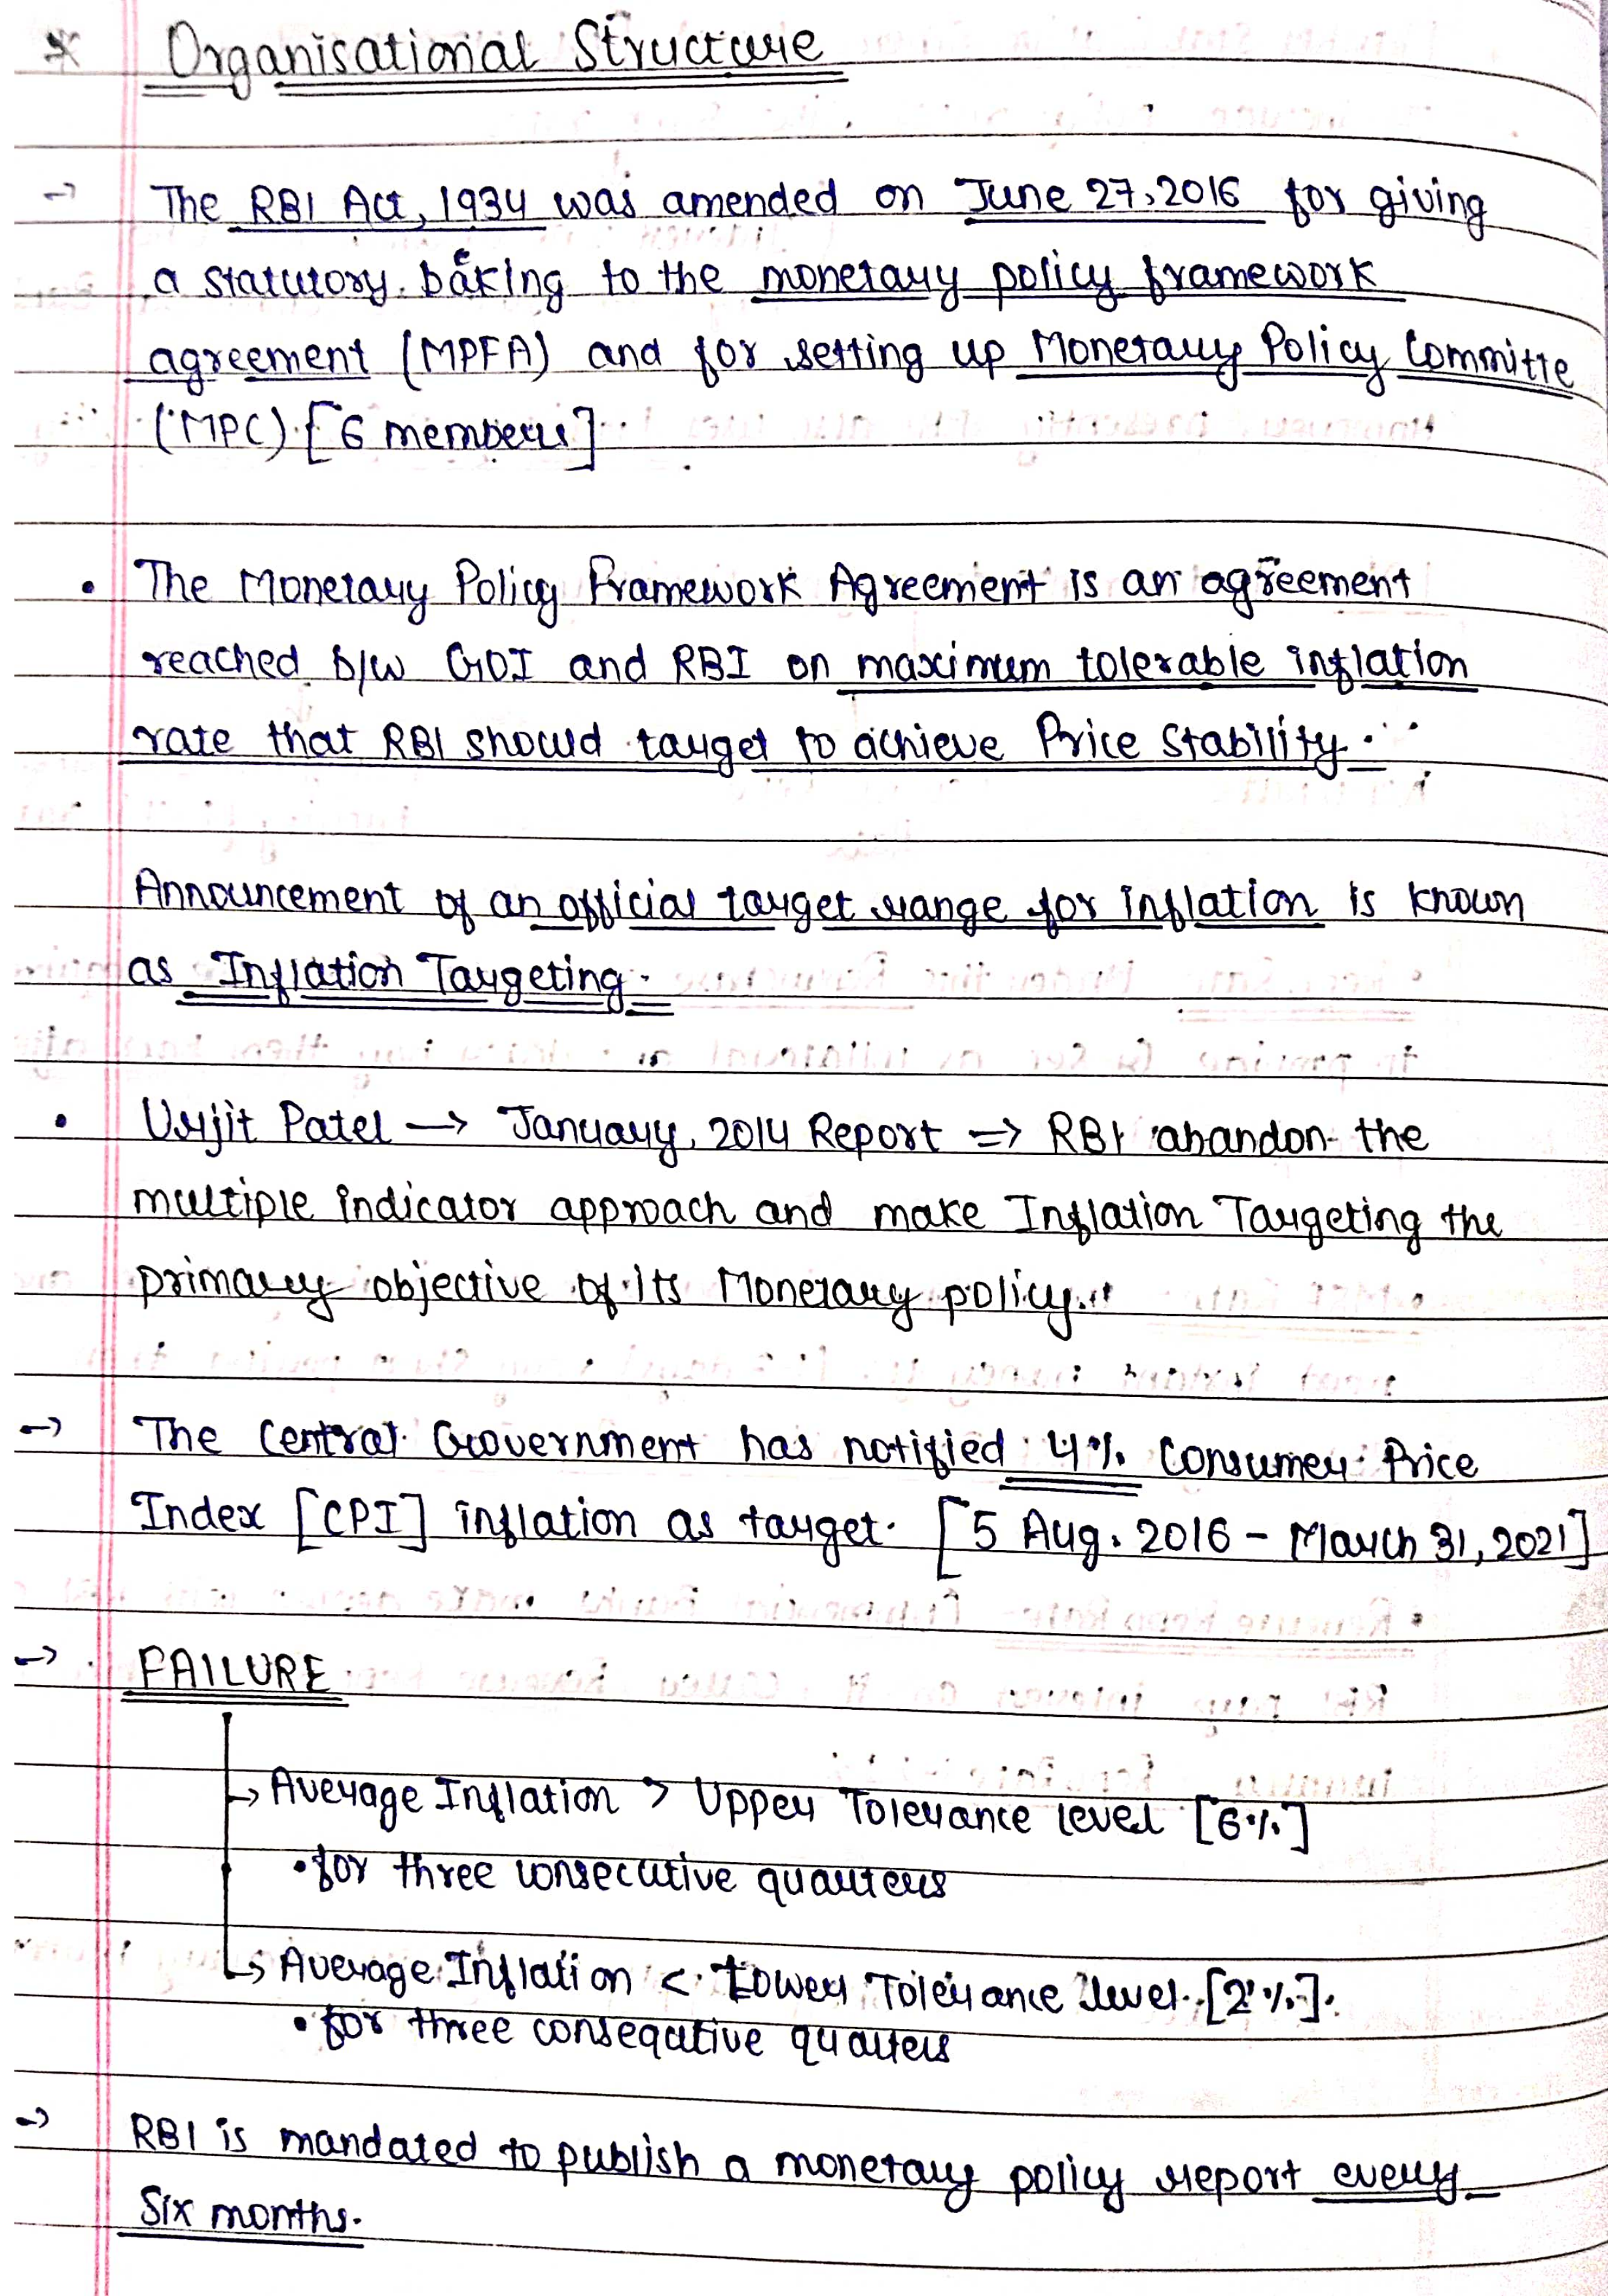 * Organisational Structure
→ The RBI Act, 1934 was amended on June 27, 2016 for giving
a statutory bacKing to the monetary policy framework
agreement (MPFA) and for setting up Monetary Policy Committe
(MPC) [6 members]
• The Monetary Policy Framework Agreement is an agreement
reached b/w GOI and RBI on maximum tolerable inflation
rate that RBI should target to achieve Price Stability.
Announcement of an official target range for inflation is known
as Inflation Targeting.
• Urjit Patel → January, 2014 Report ⇒ RBI abandon the
multiple indicator approach and make Inflation Targeting the
primary objective of its Monetary policy.
→ The Central Government has notified 4% Consumer Price
Index [CPI] inflation as target. [5 Aug. 2016 - March 31, 2021]
→ FAILURE
↳ Average Inflation > Upper Tolerance level [6%]
• for three consecutive quarters
↳ Average Inflation < Lower Tolerance level [2%].
• for three consequtive quarters
→ RBI is mandated to publish a monetary policy report every
Six months.